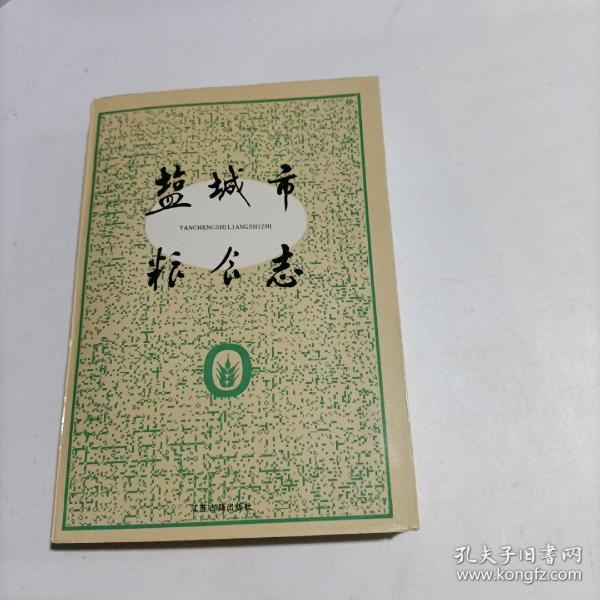 盐城市
YANCHENGSHILIANGSHIZHI
粮食志
江苏古籍出版社
孔夫子旧书网
www.kongfz.com